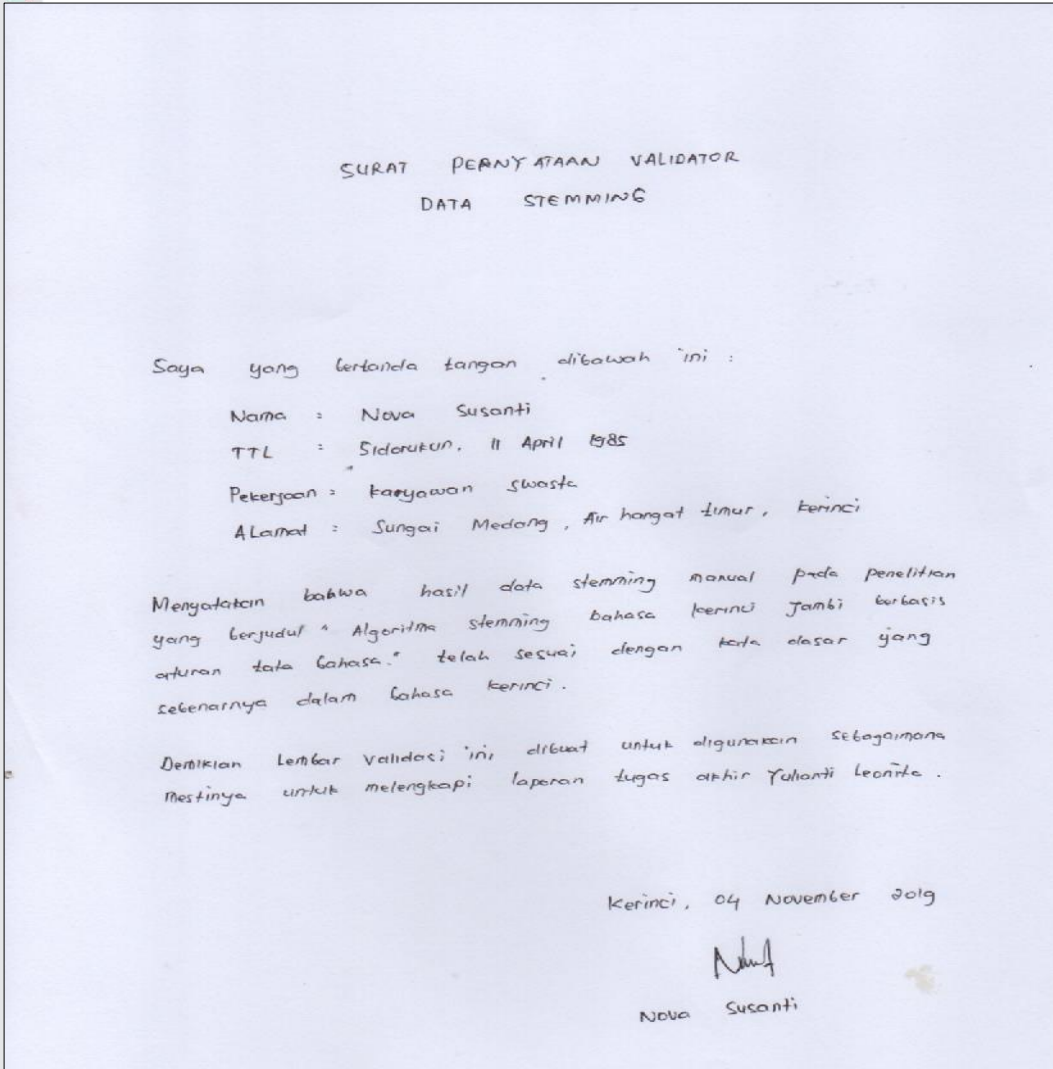 SURAT PERNYATAAN VALIDATOR
DATA STEMMING
Saya yang bertanda tangan dibawah ini :
Nama : Nova Susanti
TTL : Sidorukun, 11 April 1985
Pekerjaan : karyawan swasta
ALamat : Sungai Medang, Air hangat timur, kerinci
Menyatakan bahwa hasil data stemming manual pada penelitian
yang berjudul " Algoritma stemming bahasa kerinci Jambi berbasis
aturan tata bahasa." telah sesuai dengan kata dasar yang
sebenarnya dalam bahasa kerinci.
Demikian Lembar validasi ini dibuat untuk digunakan sebagaimana
mestinya untuk melengkapi laporan tugas akhir Yulianti Leonita.
Kerinci, 04 November 2019
Nova Susanti